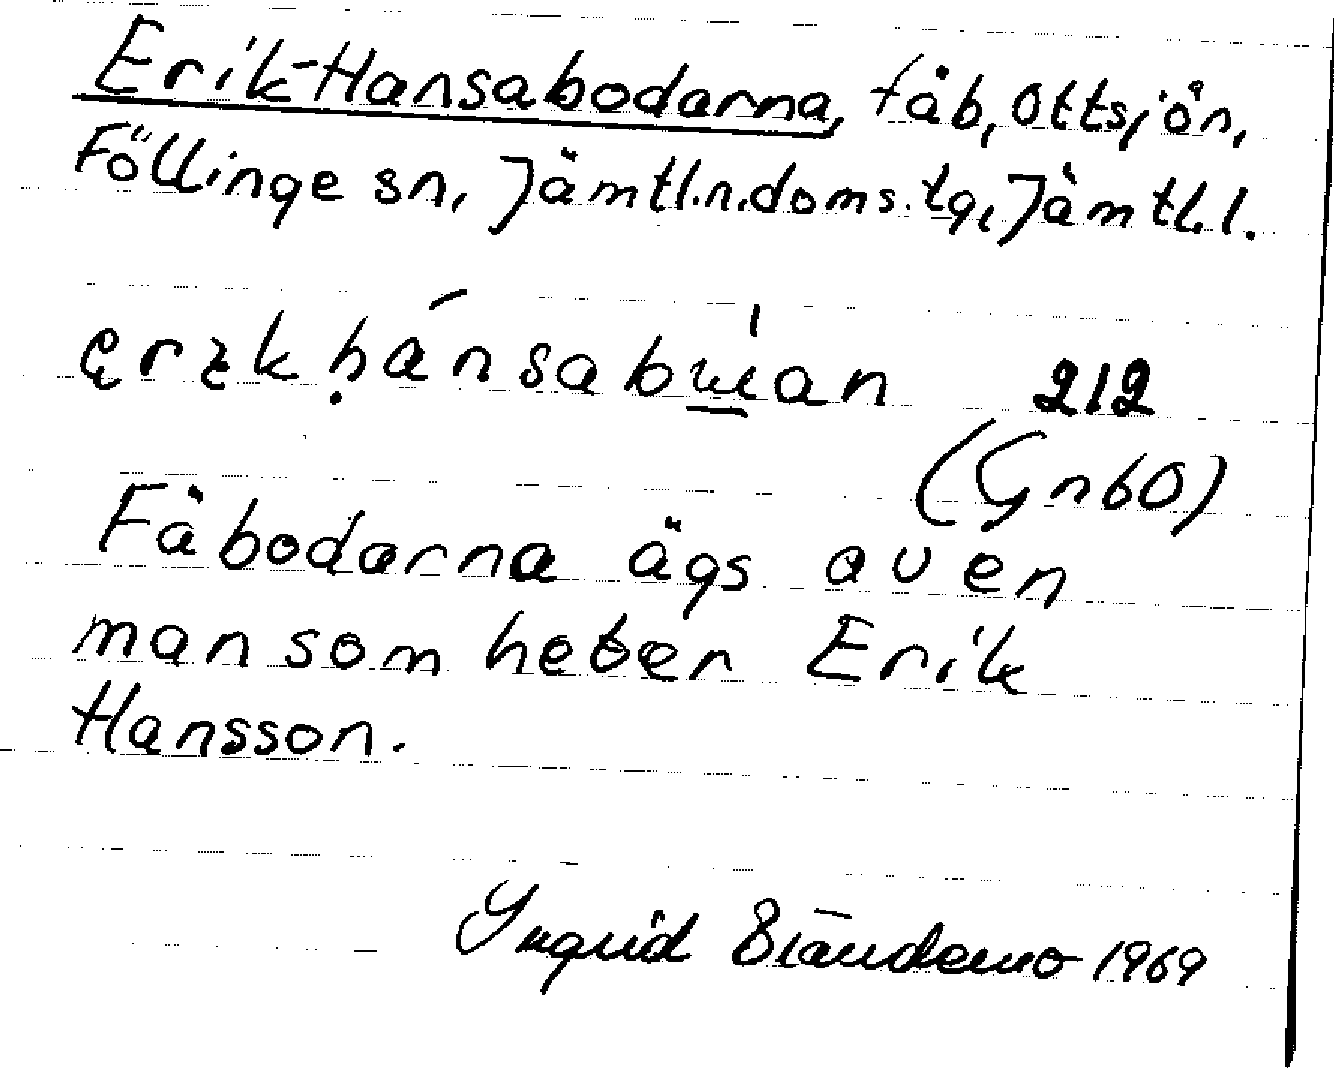 Erik-Hansabodarna, fäb, Ottsjön,
Föllinge sn, Jämtl.n.doms.tg, Jämtl.l.
212
(Gn60)
Fäbodarna ägs av en
man som heter Erik
Hansson.
Ingrid 1969